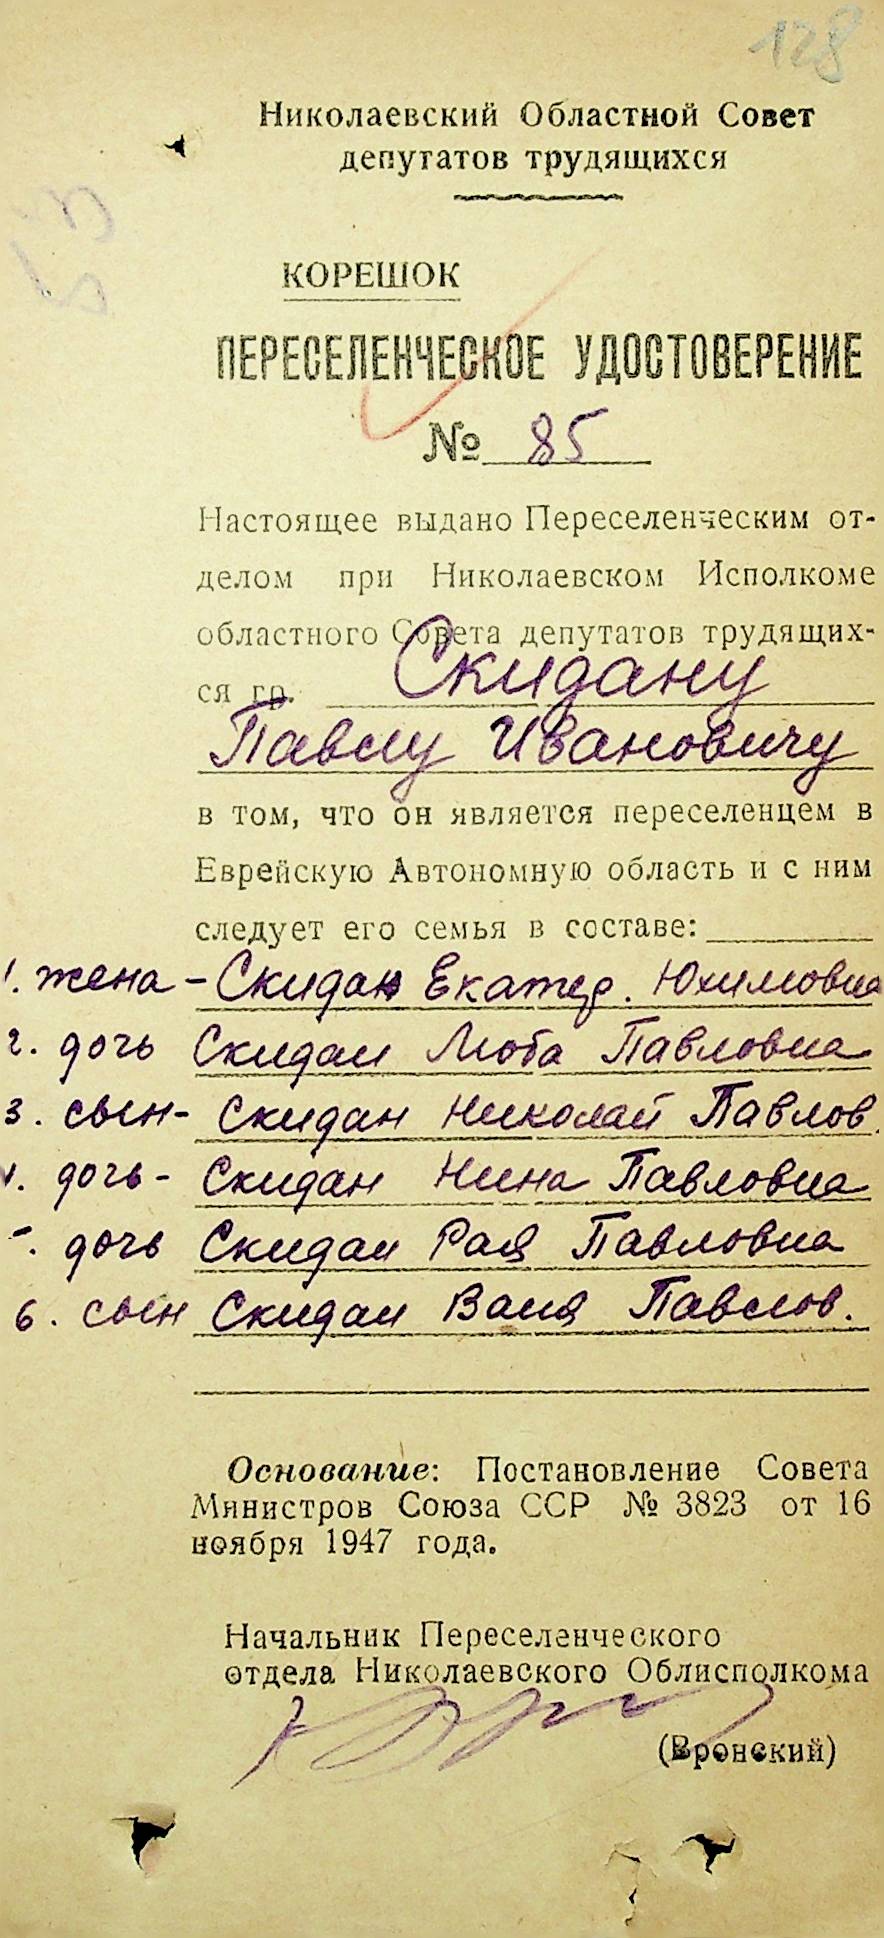 128
Николаевский Областной Совет
депутатов трудящихся
КОРЕШОК
ПЕРЕСЕЛЕНЧЕСКОЕ УДОСТОВЕРЕНИЕ
№ 85
Настоящее выдано Переселенческим от-
делом при Николаевском Исполкоме
областного Совета депутатов трудящих-
ся гр. Скидану
Павлу Ивановичу
в том, что он является переселенцем в
Еврейскую Автономную область и с ним
следует его семья в составе:
1. жена - Скидан Екатер. Юхимовна
2. дочь Скидан Люба Павловна
3. сын - Скидан Николай Павлов.
дочь - Скидан Нина Павловна
дочь Скидан Рая Павловна
6. сын Скидан Ваня Павлов.
Основание: Постановление Совета
Министров Союза ССР № 3823 от 16
ноября 1947 года.
Начальник Переселенческого
отдела Николаевского Облисполкома
(Вронский)